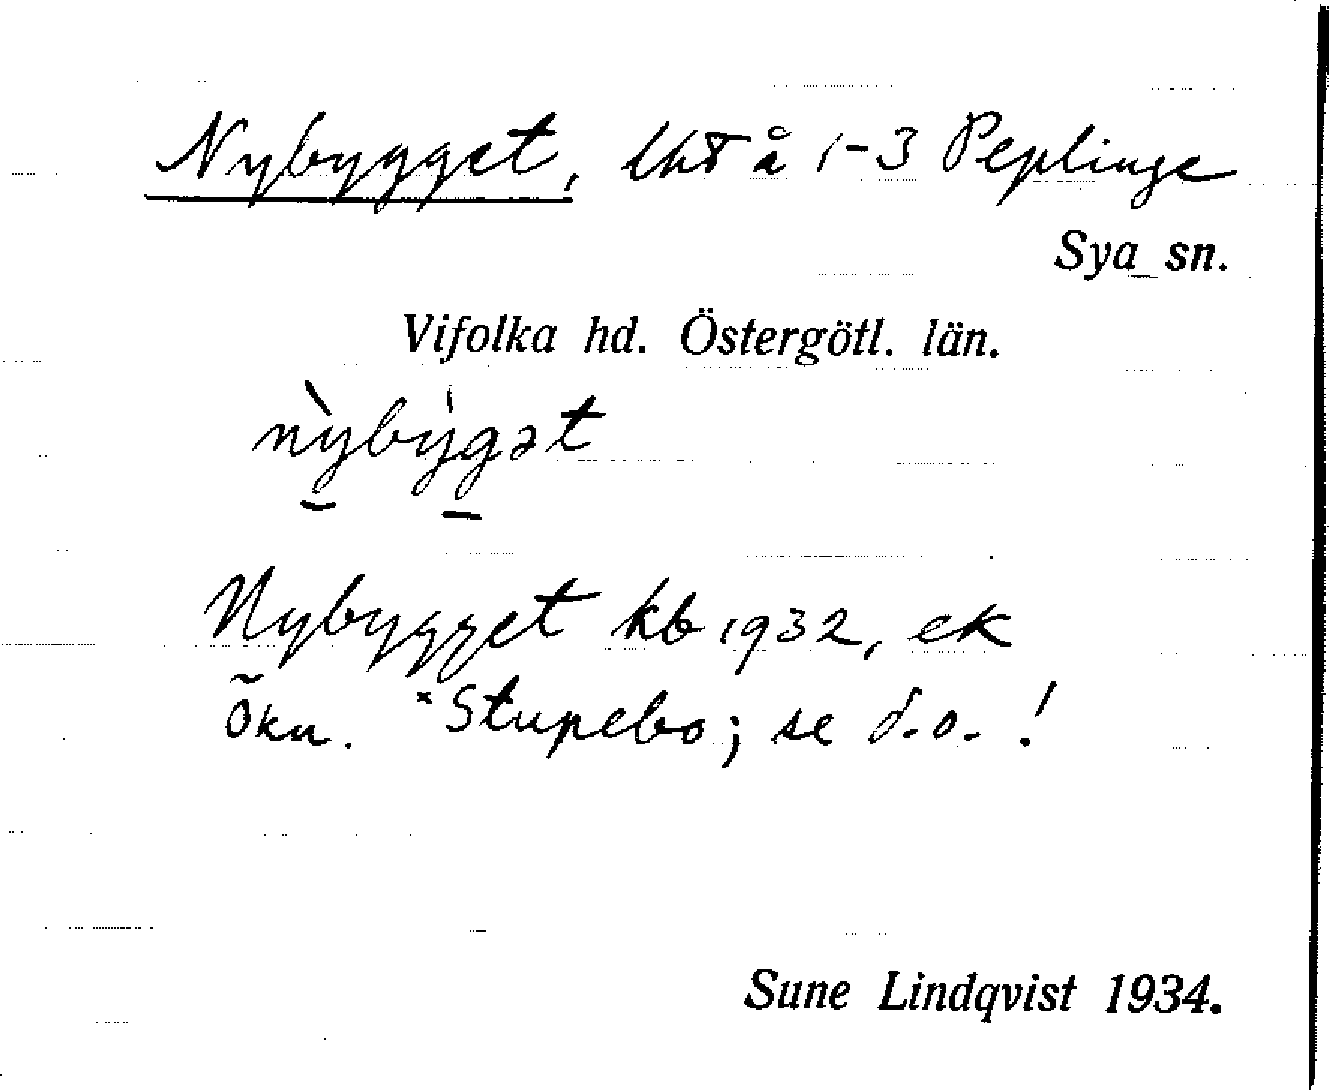 Nybygget, lht å 1-3 Peplinge
Sya sn.
Vifolka hd. Östergötl. län.
nỳbýgət
Nybygget kb 1932, ek
Õkn. ˣStupebo; se d.o.!
Sune Lindqvist 1934.